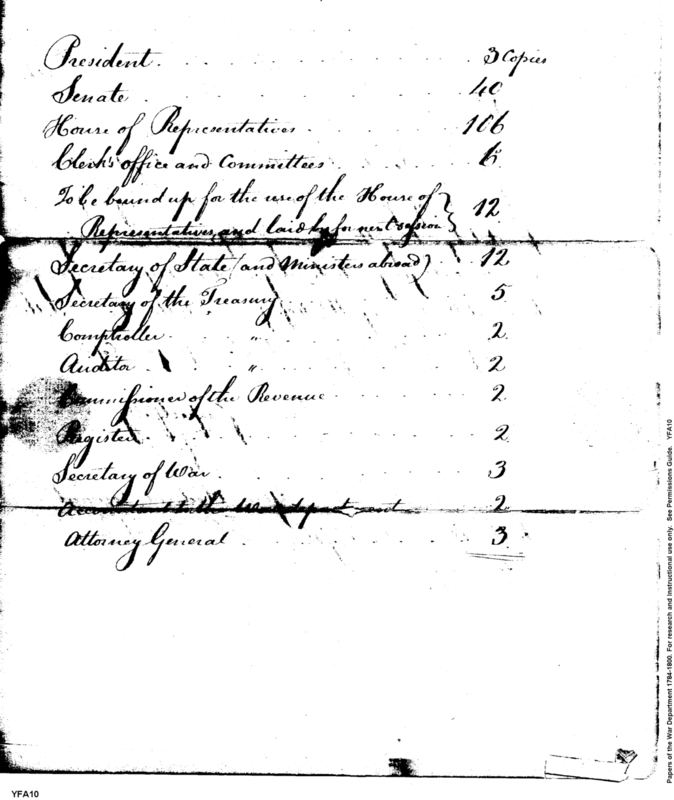 President. 3 Copies
Senate 40
House of Representatives 106
Clerk's office and Committees 6
To be bound up for the use of the House of } 12
Representatives, and laid by for next session }
Secretary of State (and Ministers abroad) 12
Secretary of the Treasury 5
Comptroller " 2
Auditor " 2
Commissioner of the Revenue 2
Register 2
Secretary of War 3
Accountant to the War department 2
Attorney General 3
Papers of the War Department 1784-1800. For research and instructional use only. See Permissions Guide. YFA10
YFA10